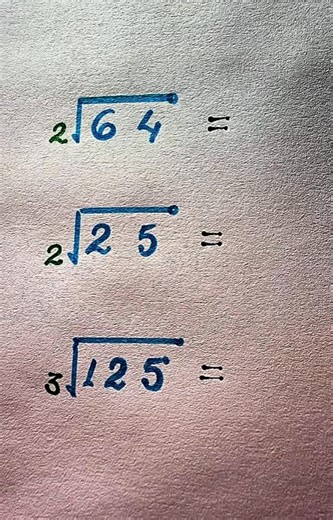 ²√64 =
²√25 =
³√125 =